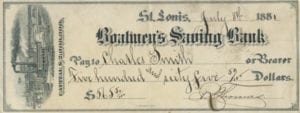 St. Louis, July 1881
Boatmen's Saving Bank,
Pay to Charles Smith or Bearer
Five hundred and sixty five Dollars
CAPITAL $2,000,000